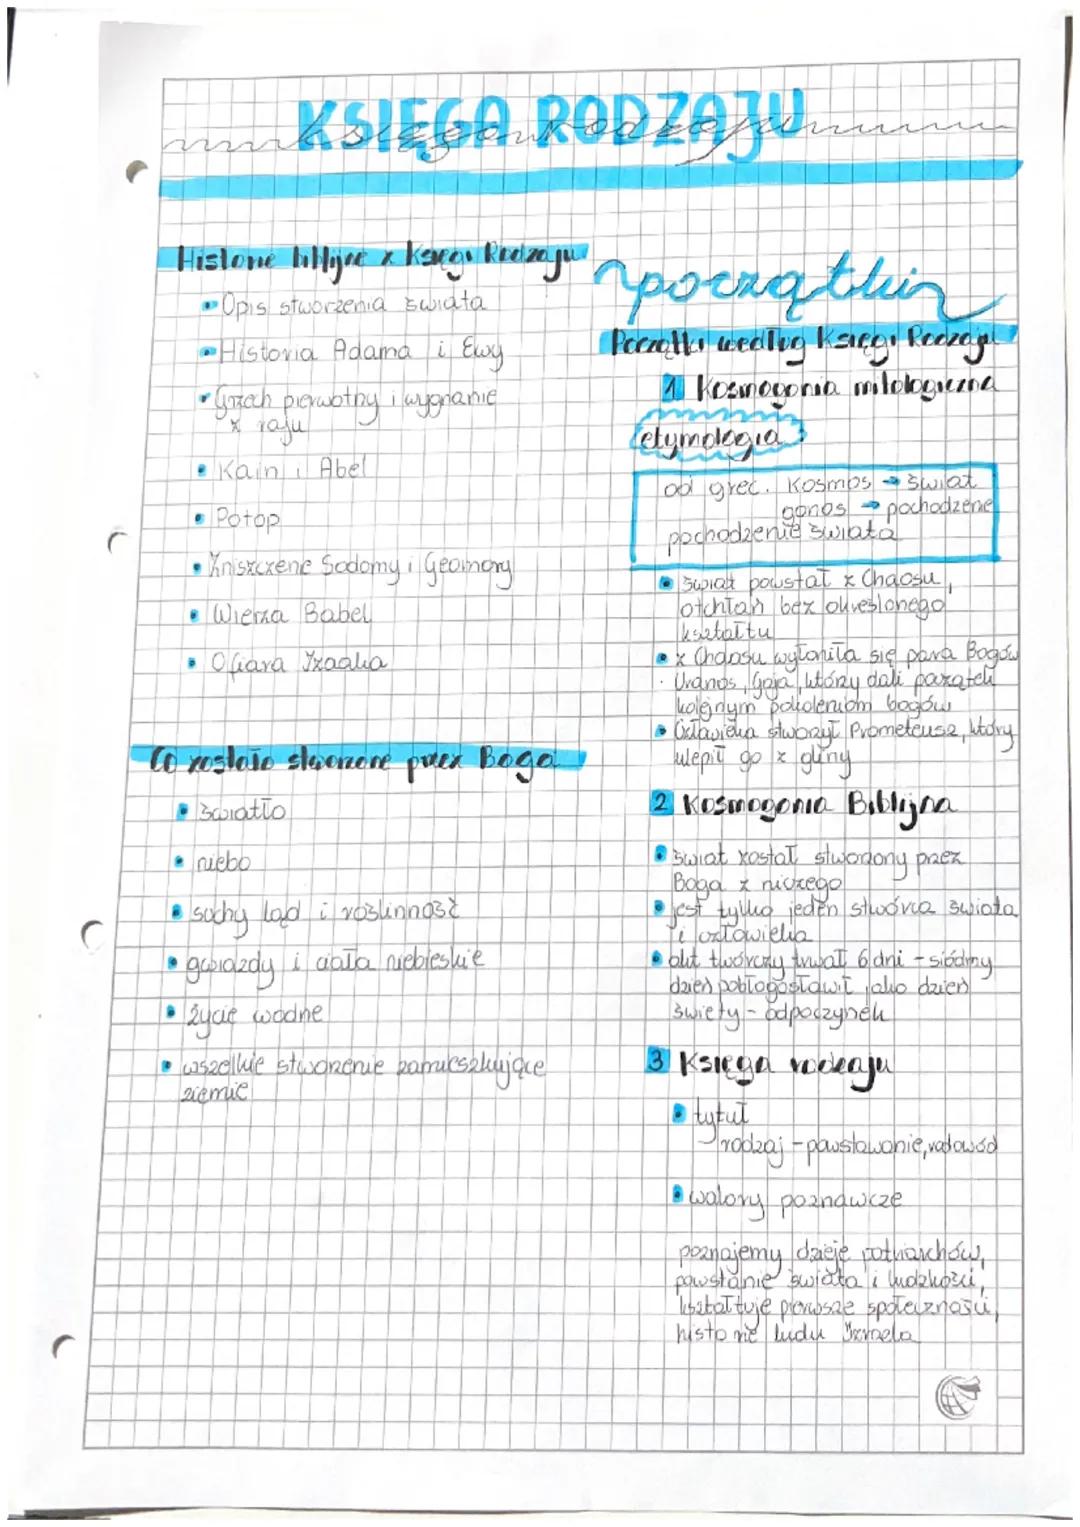 KSIĘGA RODZAJU
Księga Rodzaju
Historie biblijne z Księgi Rodzaju
Opis stworzenia świata
Historia Adama i Ewy
Grzech pierwotny i wygnanie
z raju
Kain i Abel
Potop
Zniszczene Sodomy i Geomory
Wierza Babel
Ofiara Izaaka
Co zostało stworzone przez Boga
światło
niebo
suchy ląd i roślinność
gwiazdy i ciała niebieskie
życie wodne
wszelkie stworzenie zamieszkujące
ziemie
początki
Początki według Księgi Rodzaju
1 Kosmogonia mitologiczna
etymologia
od grec. Kosmos → świat
gonos → pochodzene
pochodzenie świata
świat powstał z Chaosu,
otchłań bez określonego
kształtu
z Chaosu wyłoniła się para Bogów
Uranos, Gaja, którzy dali początek
kolejnym pokoleniom bogów
Człowieka stworzył Prometeusz, który
ulepił go z gliny
2 Kosmogonia Biblijna
świat został stworzony przez
Boga z niczego
jest tylko jeden stwórca świata
i człowieka
akt twórczy trwał 6 dni - siódmy
dzień pobłogosławił jako dzień
święty - odpoczynek
3 Księga rodzaju
tytuł
rodzaj - powstawanie, rodowód
walory poznawcze
poznajemy dzieje patriarchów,
powstanie świata i ludzkości,
kształtuje pierwsze społeczności,
historie ludu Izraela